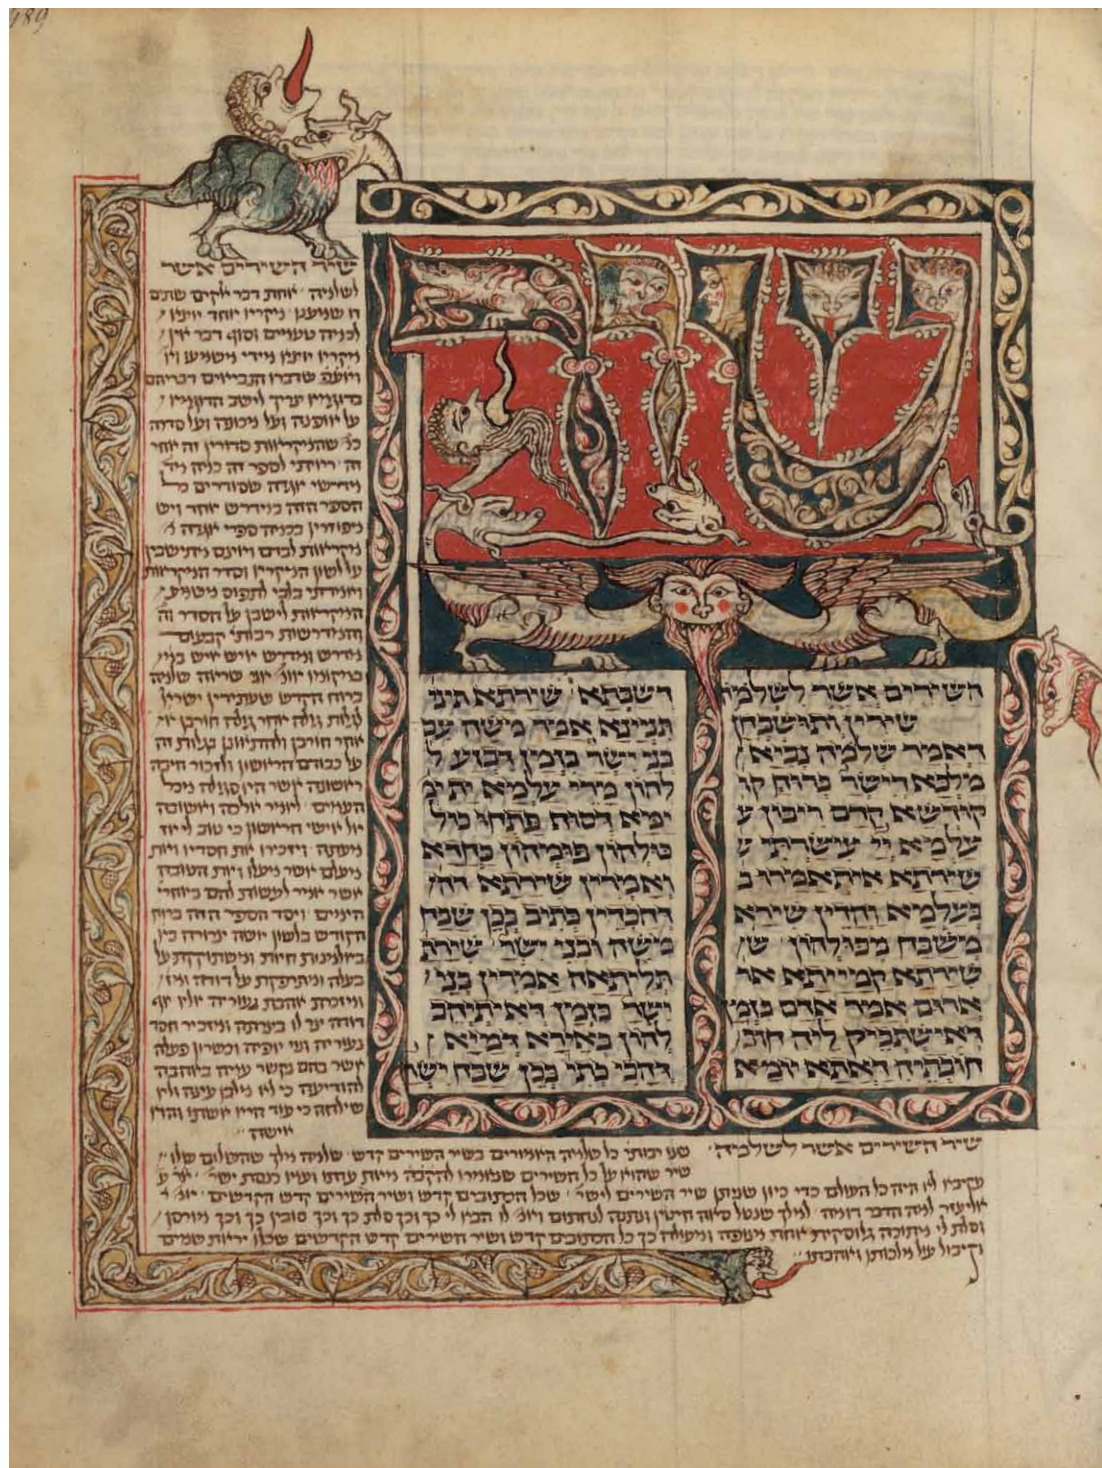 שיר
השירים אשר לשלמה
שירין ותושבחן
דאמר שלמה נביא
מלכא דישר ברוח קו
קודשא קדם ריבון ע
עלמא יי עישרתי ש
שירתא איתאמרו ב
בעלמא וחדין שירא
משבח מכולהון ש
שירתא קמייתא אר
ארום אמר אדם בזמן
דאישתביק ליה חוב
חובתיה דאתא יומא
דשבתא שירתא תיני
תניינא אמר משה עם
בני ישר בזמן דבזע ל
להון מרי עלמא ית ימ
ימא דסוף פתחו כול
כולהון פומהון כחדא
ואמרין שירתא דה
דהכדין כתיב בכן שבח
משה ובני ישר שירת
תליתאה אמרין בני
ישר בזמן דאיתיהב
להון באירא דמיא
דהכי כתי בכן שבח ישר
שיר השירים אשר
לשלמה אחת דבר אלקים שתים
זו שמענו מיקרא אחד יוצא
לכמה טעמים וסוף דבר אין
מיקרא יוצא מידי משמעו וא
ואעפ שדברו הנביאים דבריהם
בדוגמא צריך לישב הדוגמא
על אופנה ועל מכונה ועל סדרה
כמ שהמיקראות סדורין זה אחר
זה ראיתי לספר זה כמה מיד
מידרשי אגדה שסודרים כל
הספר הזה במידרש אחד ויש
מפוזרין בכמה ספרי אגדה
מיקראות לבדם ואינם מתישבין
על לשון המיקרא וסדר המיקראות
ואמרתי בלבי לתפוס משמע
המיקראות לישבן על הסדר וה
והמדרשות רבותי קבעום
מדרש ומדרש איש איש במ
במקומו שראה שלמה
ברוח הקדש שעתידין ישראל
לגלות גולה אחר גולה חורבן
אחר חורבן ולהתאונן בגלות זה
על כבודם הראשון ולזכור חיבה
ראשונה אשר היו סגולה מכל
העמים לאמר אלכה ואשובה
אל אישי הראשון כי טוב לי אז
מעתה ויזכירו את חסדיו ואת
מעלם אשר מעלו ואת הטובה
אשר אמר לעשות להם באחרי
הימים ויסד הספר הזה ברוח
הקודש בלשון אשה צרורה בין
באלמנות חיות ומשתוקקת על
בעלה ומתרפקת על דודה
ומזכרת אהבת נעוריה אליו אף
דודה צר לו בצרתה ומזכיר חסד
נעוריה ונוי יופיה וכשרון פעלה
אשר בהם נקשר עמה באהבה
להודיעה כי לא מלבו ענה ולא
שילחה כי עוד היא אשתו והוא
אישה
שיר השירים אשר לשלמה
כל שלמה האמורים בשיר השירים קדש מלך שהשלום שלו
שיר שהוא על כל השירים
עקיבא לא היה כל העולם כדי כיון שניתן שיר השירים לישר שכל הכתובים קדש ושיר השירים קדש הקדשים
כל הכתובים קדש ושיר השירים קדש הקדשים שכולו יראת שמים
וקיבול על מלכותו ואהבתו